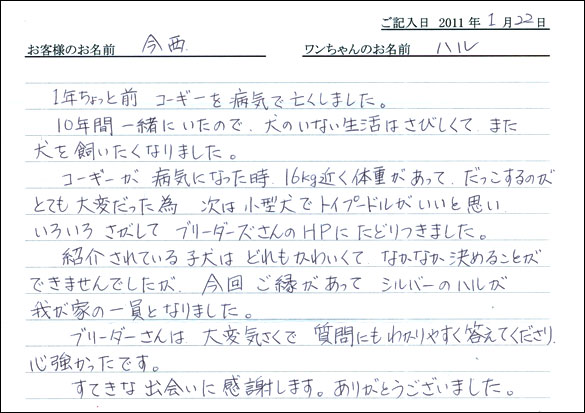 ご記入日 2011年 1月 22日
お客様のお名前 今西 ワンちゃんのお名前 ハル
1年ちょっと前 コーギーを病気で亡くしました。
10年間一緒にいたので、犬のいない生活はさびしくて、また
犬を飼いたくなりました。
コーギーが 病気になった時、16kg近く体重があって、だっこするのが
とても大変だった為 次は小型犬でトイプードルがいいと思い、
いろいろ さがして ブリーダーズさんのHPにたどりつきました。
紹介されている子犬は どれもかわいくて、なかなか決めることが
できませんでしたが、今回 ご縁があって シルバーのハルが
我が家の一員となりました。
ブリーダーさんは、大変気さくで 質問にもわかりやすく答えてくださり、
心強かったです。
すてきな出会いに感謝します。ありがとうございました。